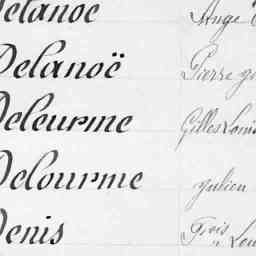 Delanoe Ange
Delanoë Pierre
Deleurme Gilles Louis
Delourme Julien
Denis Frois Lou